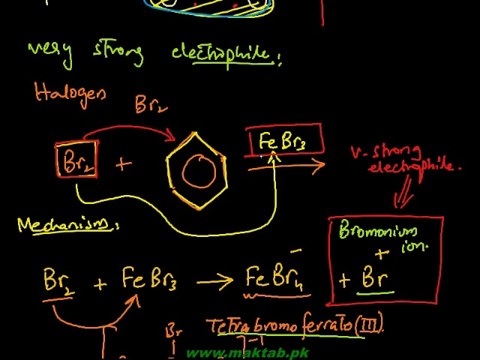 very strong electrophile:
Halogen
Br2
Br2 + FeBr3
v-strong electrophile.
Mechanism:
Bromonium ion.
Br2 + FeBr3 → FeBr4⁻ + Br⁺
Tetrabromoferrato(III)
Br
www.maktab.pk